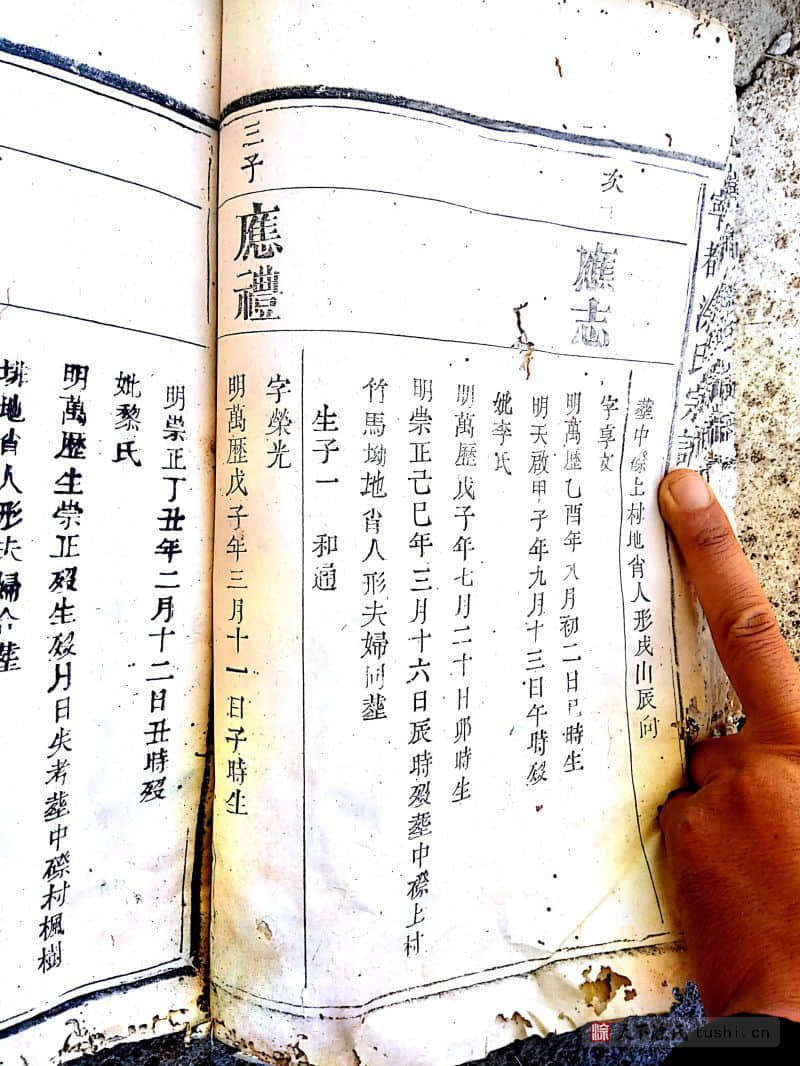 寧都涂氏宗譜
葬中磜上村地肖人形戌山辰向
次
應志
字享文
明萬歷乙酉年八月初二日巳時生
明天啟甲子年九月十三日午時殁
妣李氏
明萬歷戊子年七月二十日卯時生
明崇正己巳年三月十六日辰時殁葬中磜上村
竹馬坳地肖人形夫婦同葬
生子一 和通
三子
應禮
字榮光
明萬歷戊子年三月十一日子時生
明崇正丁丑年二月十二日丑時殁
妣黎氏
明萬歷生崇正殁生殁月日失考葬中磜村楓樹
排地肖人形夫婦合葬
天下涂氏 tushi.cn